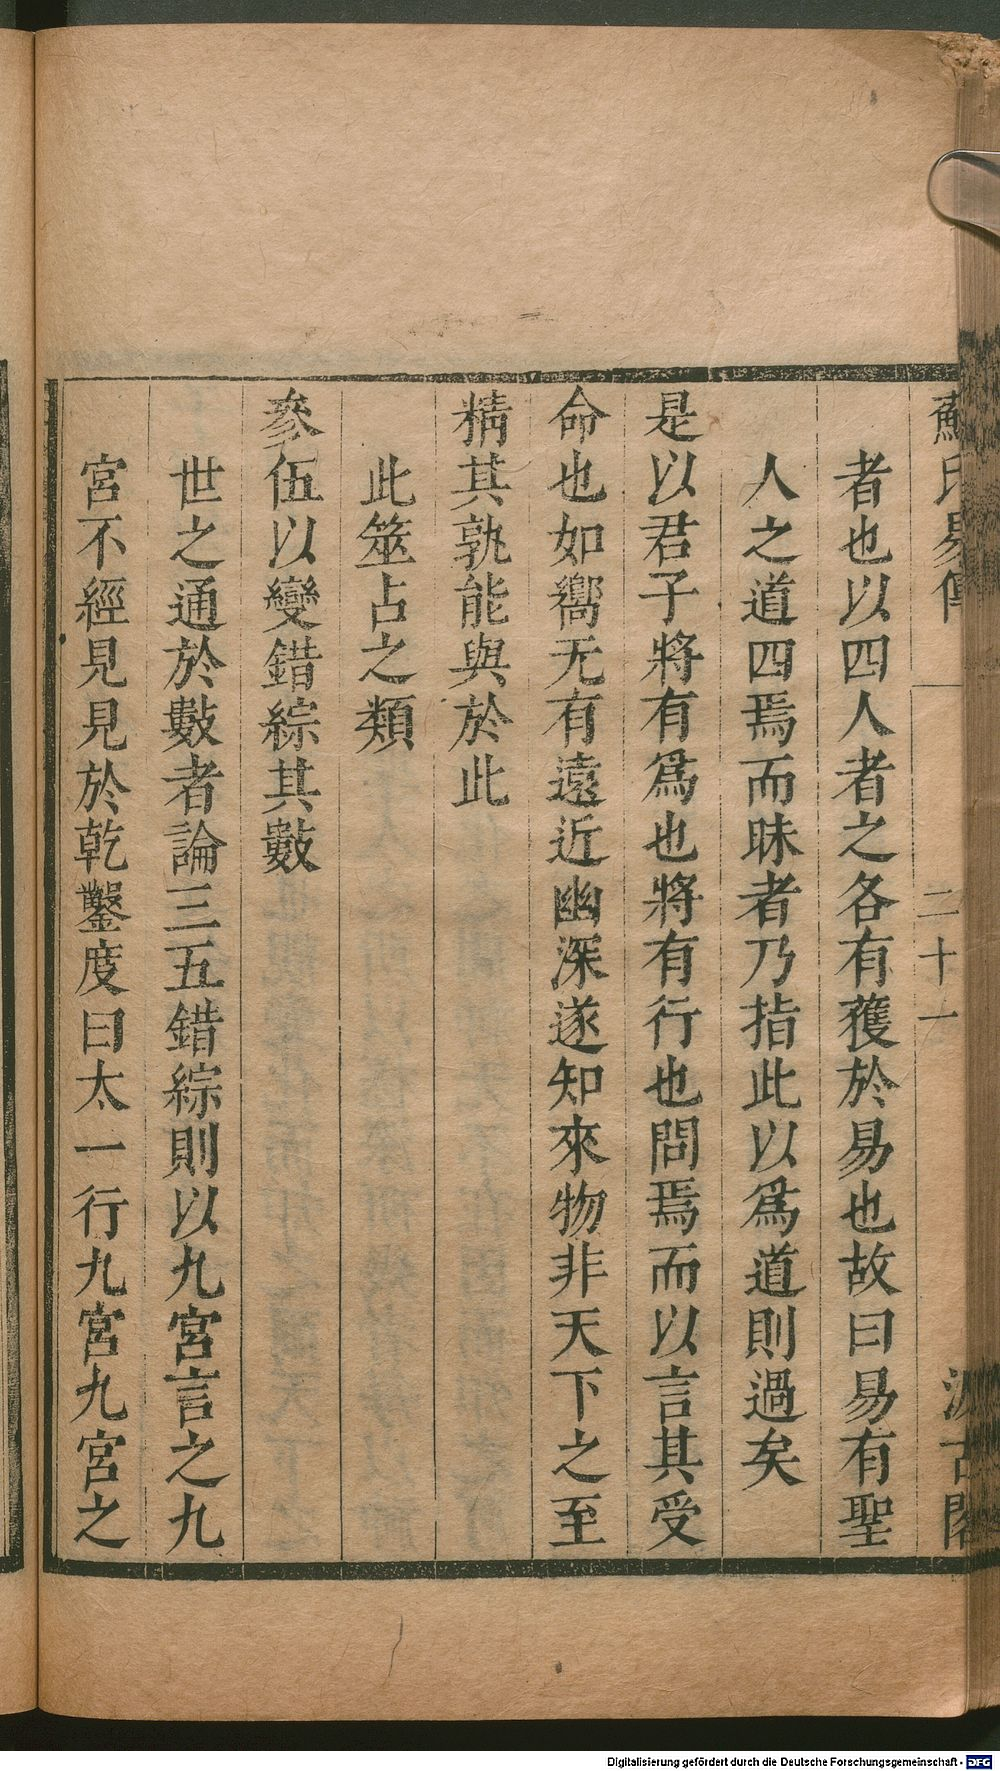 蘇氏易傳 二十一 汲古閣
者也以四人者之各有獲於易也故曰易有聖
人之道四焉而昧者乃指此以爲道則過矣
是以君子將有爲也將有行也問焉而以言其受
命也如嚮无有遠近幽深遂知來物非天下之至
精其孰能與於此
此筮占之類
參伍以變錯綜其數
世之通於數者論三五錯綜則以九宮言之九
宮不經見見於乾鑿度曰太一行九宮九宮之
Digitalisierung gefördert durch die Deutsche Forschungsgemeinschaft - DFG